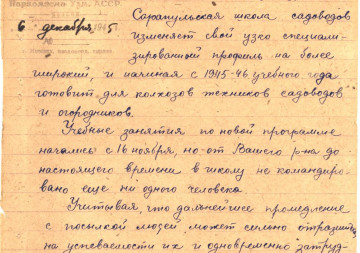 Наркомзема Удм. АССР.
6 декабря 1945
Сарапульская школа садоводов
изменяет свой узко специали-
зированной профиль на более
широкий, и начиная с 1945-46 учебного года
готовит для колхозов техников садоводов
и огородников.
Учебные занятия по новой программе
начались с 16 ноября, но от Вашего р-на до
настоящего времени в школу не командиро-
вано еще ни одного человека
Учитывая, что дальнейшее промедление
с посылкой людей может сильно отразиться
на успеваемости их и одновременно затруд-